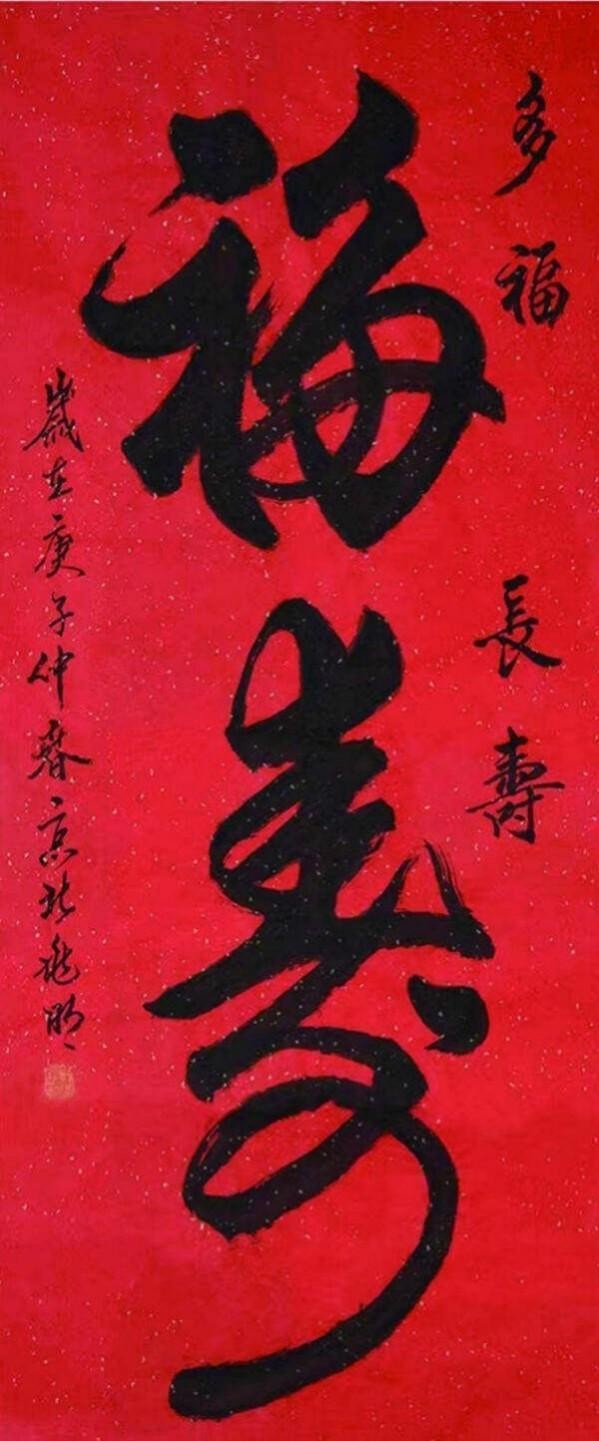 多福長壽
福壽
歲在庚子仲春京北